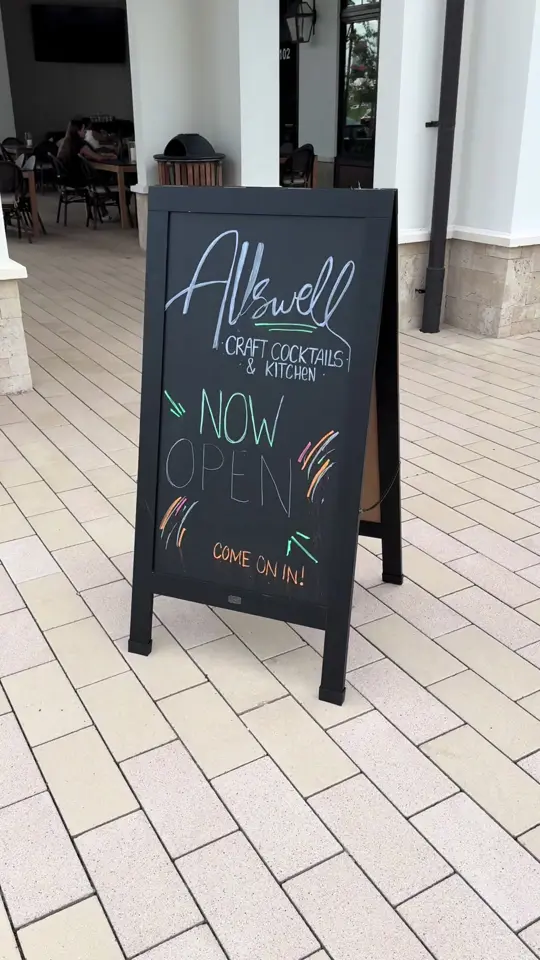 102
Allswell
CRAFT COCKTAILS
& KITCHEN
NOW
OPEN
COME ON IN!